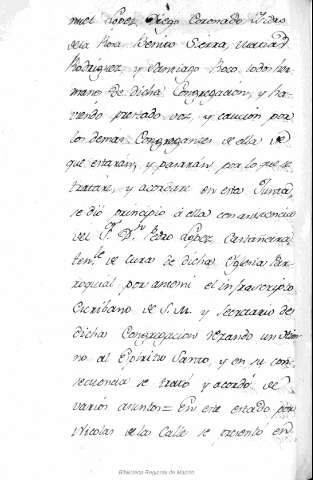 nuel Lopez, Diego Coronado, Isidro
de la Rosa Benito Sierra, Manuel
Rodriguez, y Santiago Roco, todos her
manos de dicha Congregacion, y ha
viendo prestado voz, y caucion por
los demas Congregantes de ella de
que estaran, y pasaràn por lo que se
tratáre, y acordáre en esta Junta,
se dió principio à ella con asistencia
del Sr. Dn. Pedro Lopez Castañera,
tente. de Cura de dicha Yglesia Par-
roquial por ante mi el infrascripto
Escribano de S. M. y Secretario de
dicha Congregacion rezando un Him
no al Espiritu Santo, y en su con-
secuencia se trató y acordó de
varios asuntos = En este estado por
Nicolas de la Calle se presentó en
Biblioteca Regional de Madrid